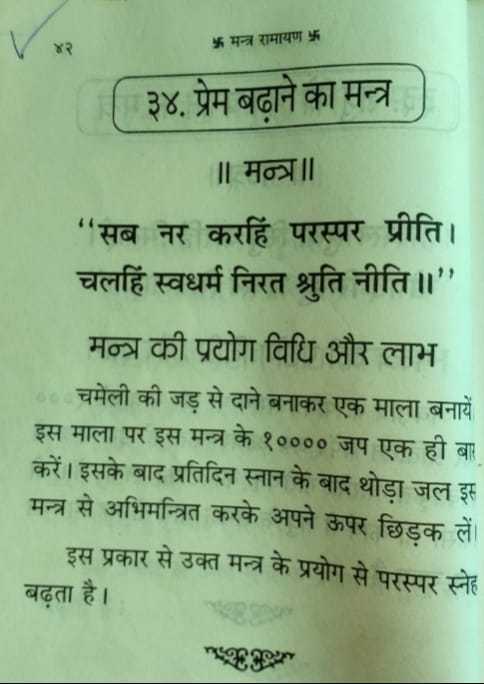 ४२
卐 मन्त्र रामायण 卐
३४. प्रेम बढ़ाने का मन्त्र
॥ मन्त्र॥
‘‘सब नर करहिं परस्पर प्रीति।
चलहिं स्वधर्म निरत श्रुति नीति॥’’
मन्त्र की प्रयोग विधि और लाभ
चमेली की जड़ से दाने बनाकर एक माला बनायें
इस माला पर इस मन्त्र के १०००० जप एक ही बार
करें। इसके बाद प्रतिदिन स्नान के बाद थोड़ा जल इस
मन्त्र से अभिमन्त्रित करके अपने ऊपर छिड़क लें।
इस प्रकार से उक्त मन्त्र के प्रयोग से परस्पर स्नेह
बढ़ता है।